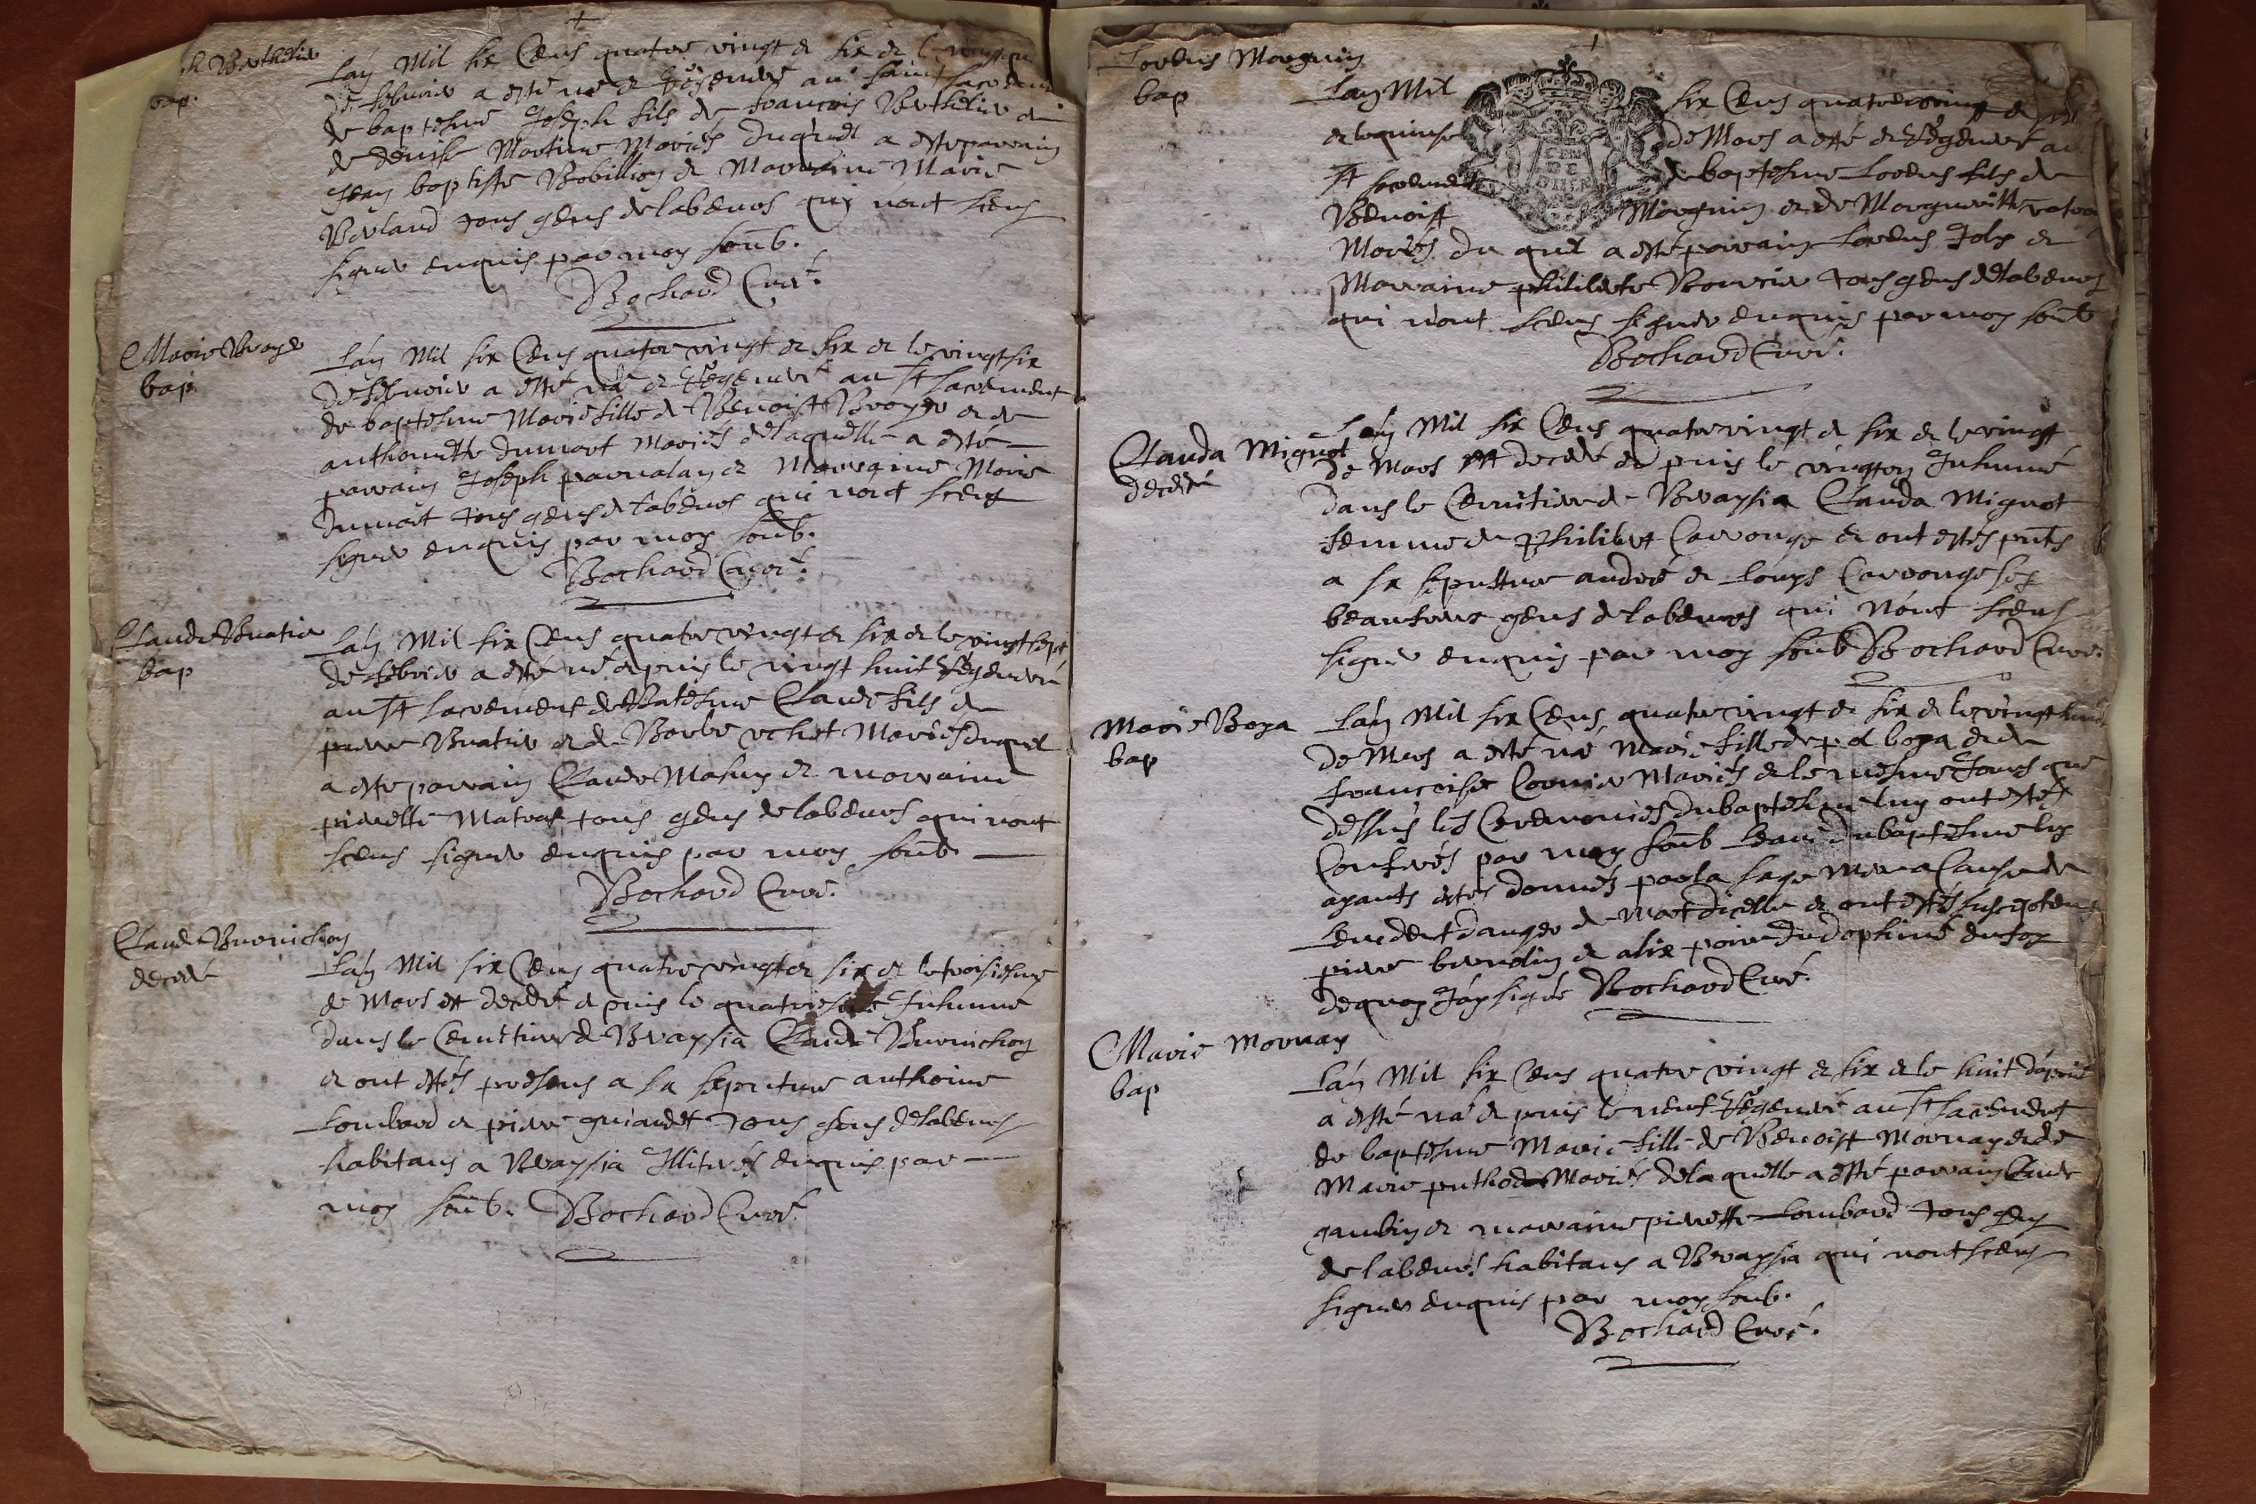 h Berthelier
bap.
Lan Mil six Cens quatre vingt et six et le vingt
de febvrier a esté né et Regeneré au saint sacrement
de baptesme Joseph fils de francois Berthelier et
de denise Martine Mariés duquel a esté parrain
Jean baptiste Bobillion et Marraine Marie
Berland tous gens de labeurs qui nont sceus
signer enquis par moy soub.
Bochard Curé.
Marie Broyer
bap
Lan Mil six Cens quatre vingt et six et le vingt six
de febvrier a esté né et Regeneré au st sacrement
de baptesme Marie fille de Benoist Broyer et de
anthoinette dumont Mariés de laquelle a esté
parrain Joseph et Marraine Marie
dumont tous gens de labeurs qui nont sceus
signer enquis par moy soub.
Bochard Curé.
Claude Buatier
bap
Lan Mil six Cens quatre vingt et six et le vingt sept
de febvrier a esté né et puis le vingt huit Regeneré
au st sacrement de Batesme Claude fils de
pierre Buatier et de Barbe Mariés duquel
a esté parrain Claude Mahuy et marraine
pierrette Matras tous gens de labeurs qui nont
sceus signer enquis par moy soub.
Bochard Curé.
Claude Burnichon
decedé
Lan Mil six Cens quatre vingt et six et le troisiesme
de Mars est decedé et puis le quatriesme Inhumé
dans le Cemitiere de Braysia Claude Burnichon
et ont estés presens a sa sepulture anthoine
Lombard et pierre guiaudet tous gens de labeurs
habitans a Braysia Illiterés enquis par
moy soub. Bochard Curé.
Lorens Morguin
bap
Lan Mil six Cens quatre vingt et six
et le quinse de Mars a esté et Regeneré au
st sacrement de baptesme Lorens fils de
Benoist Morguin et de Margueritte
Mariés du quel a esté parrain Lorens Joly et
Marraine philiberte tous gens de labeurs
qui nont sceus signer enquis par moy soub
Bochard Curé.
Clauda Mignot
decedé
Lan Mil six Cens quatre vingt et six et le vingt
de Mars est decedé et puis le vingt un Inhumé
dans le Cemitiere de Braysia Clauda Mignot
femme de Philibert Carronge et ont estés pnts
a sa sepulture andre et Louys Carronge ses
beaufrere gens de labeurs qui nont sceus
signer enquis par moy soub Bochard Curé.
Marie Boya
bap
Lan Mil six Cens quatre vingt et six et le vingt huit
de Mars a esté né Marie fille de boya et de
francoise Cornier Mariés et le mesme Jours que
dessus les Ceremonies du baptesme luy ont estés
Conferés par moy soub Leau du baptesme luy
ayants estes donnés par la sage Mere a Cause de
Leuident danger de Mort dicelle et ont estés suscepteurs
pierre et alix poire du dophiné en foy
dequoy Jay signé Bochard Curé.
Marie Mornay
bap
Lan Mil six Cens quatre vingt et six et le huit dapvril
a esté né et puis le neuf Regeneré au st sacrement
de baptesme Marie fille de Benoist Mornay et de
Marie puthod Mariés de laquelle a esté parrain Claude
gambin et marraine pierrette Lombard tous gens
de labeurs habitans a Braysia qui nont sceus
signer enquis par moy soub.
Bochard Curé.